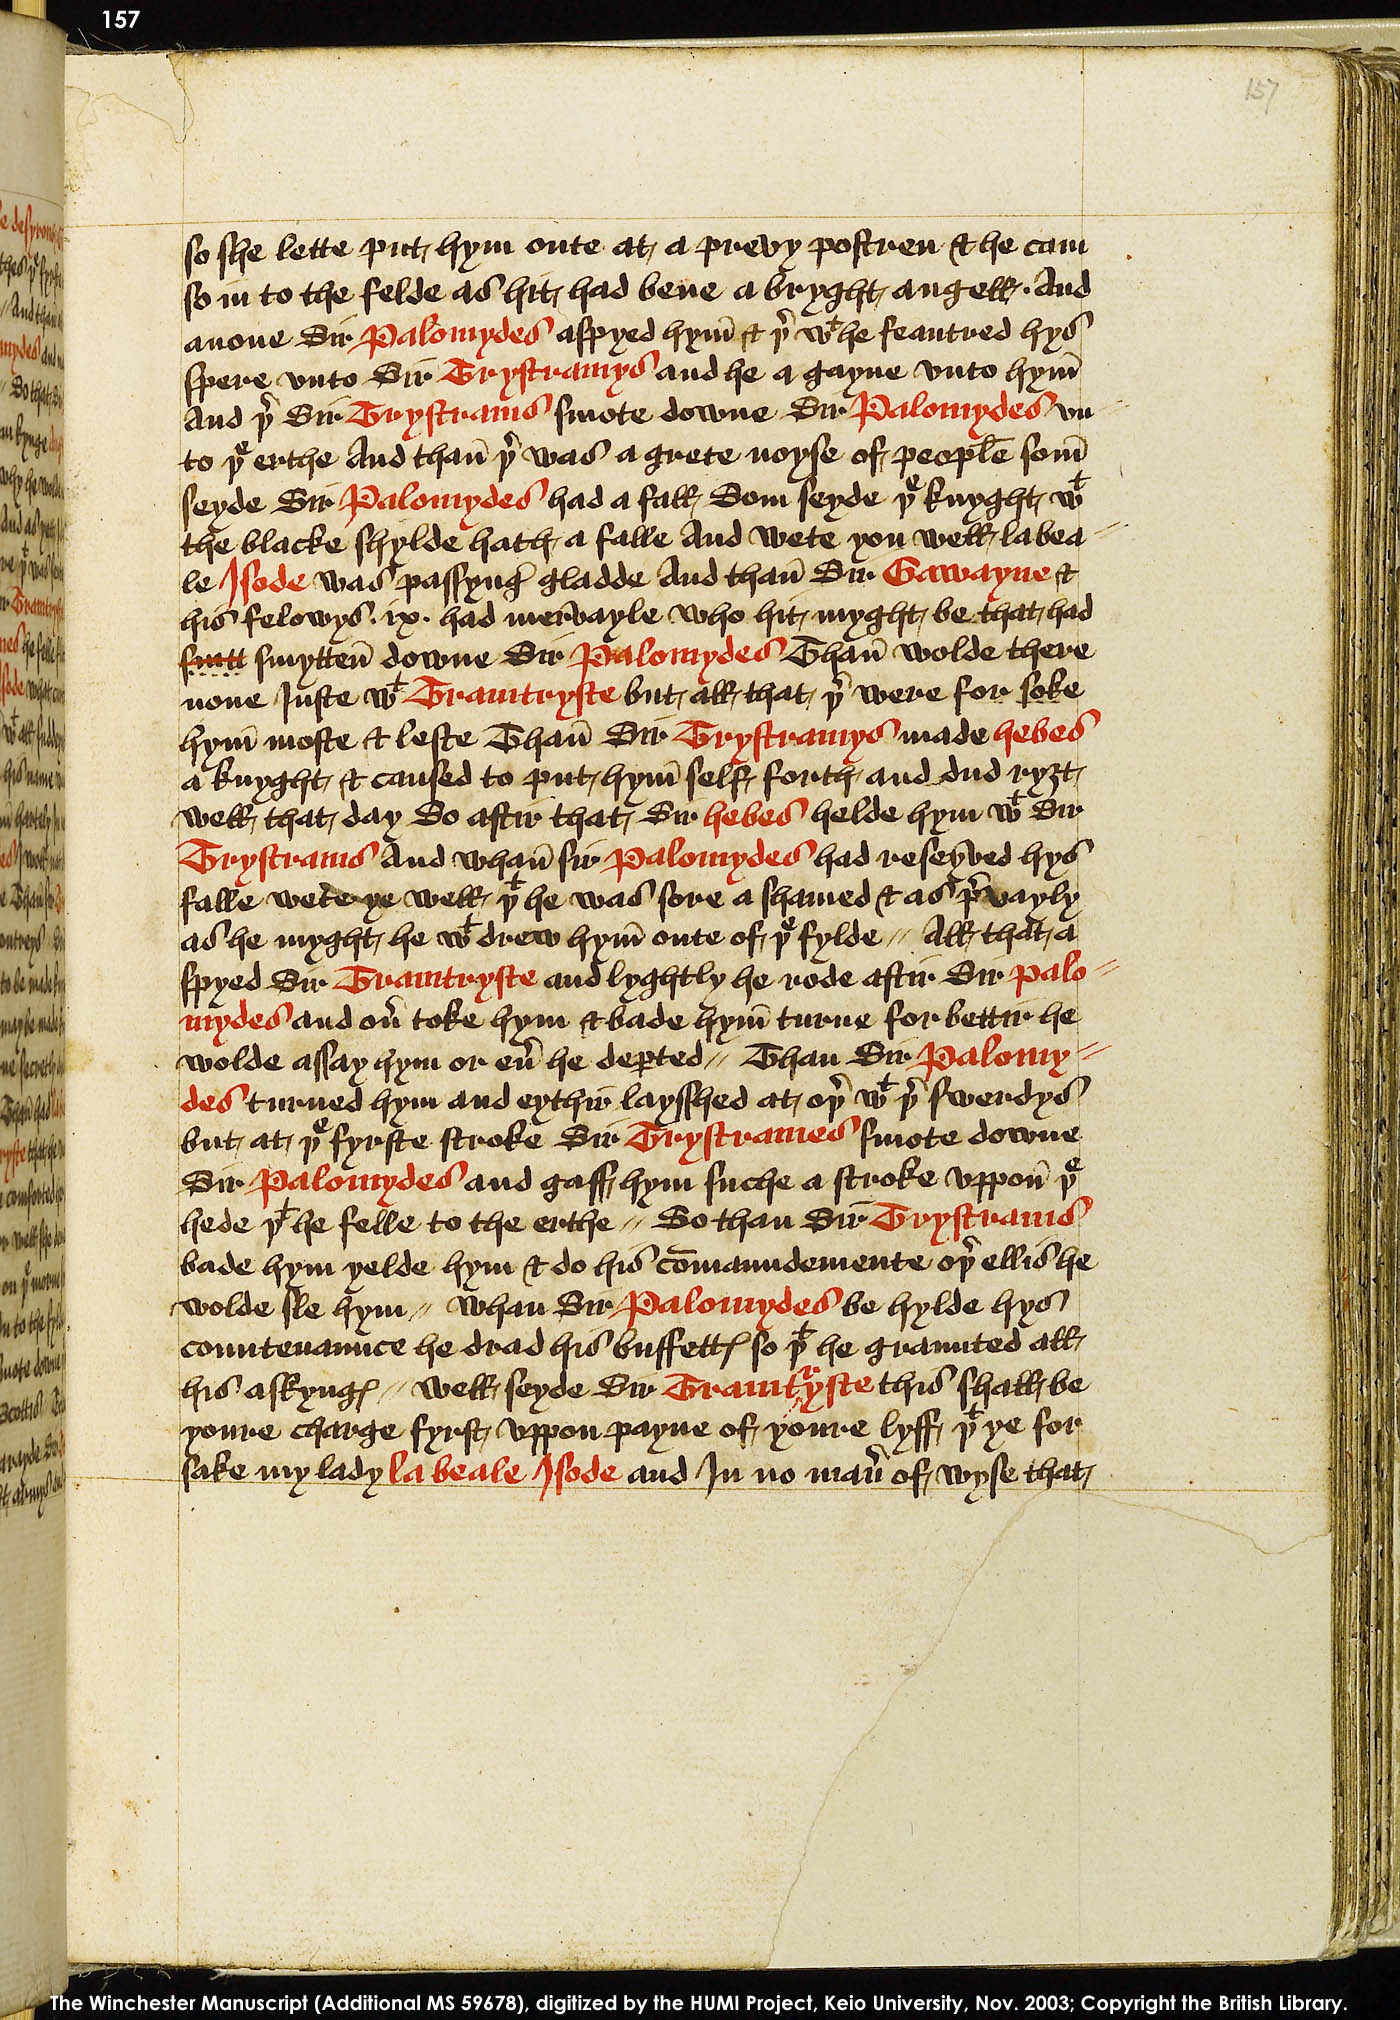 157
157
so she lette put hym oute at a prevy postren & he cam
so in to the felde as hit had bene a bryght angell · And
anone Sir Palomydes aspyed hym̄ & þer wt he feautred hys
spere vnto Sir Trystramys and he a gayne vnto hym̄
And þer Sir Trystrams smote downe Sir Palomydes vn
to þe erthe And than̄ þer was a grete noyse of people som̄
seyde Sir Palomydes had a fall Som seyde þe knyght wt
the blacke shylde hath a falle And wete you well la bea
le Isode was passyng gladde And than̄ Sir Gawayne &
his felowys · ix · had mervayle who hit myght be that had
smytt smytten̄ downe Sir Palomydes Than̄ wolde there
none Juste wt Tramtryste but all that þer were for soke
hym̄ moste & leste Than̄ Sir Trystramys made hebes
a knyght & caused to put hym̄ self forth and dud ryȝt
well that day So aftir that Sir hebes helde hym wt Sir
Trystrams And whan̄ sir Palomydes had reseyved hys
falle wete ye well þt he was sore a shamed & as prevayly
as he myght he wt drew hym̄ oute of þe fylde // All that a
spyed Sir Tramtryste and lyghtly he rode aftir Sir Palo
mydes and ouer toke hym & bade hym̄ turne for bettir he
wolde assay hym or euer he deperted // Than Sir Palomy
des turned hym and eythir laysshed at oþer wt þer swerdys
but at þe fyrste stroke Sir Trystrames smote downe
Sir Palomydes and gaff hym suche a stroke vppon̄ þe
hede þt he felle to the erthe // So than Sir Trystrams
bade hym yelde hym & do his cōmaundemente oþer ellis he
wolde sle hym // Whan Sir Palomydes be hylde hys
countenaunce he drad his buffettes so þt he graunted all
his askynges // Well seyde Sir Tramtryste this shall be
youre charge fyrst vppon payne of youre lyff þt ye for
sake my lady la beale Isode and In no maner of wyse that
The Winchester Manuscript (Additional MS 59678), digitized by the HUMI Project, Keio University, Nov. 2003; Copyright the British Library.